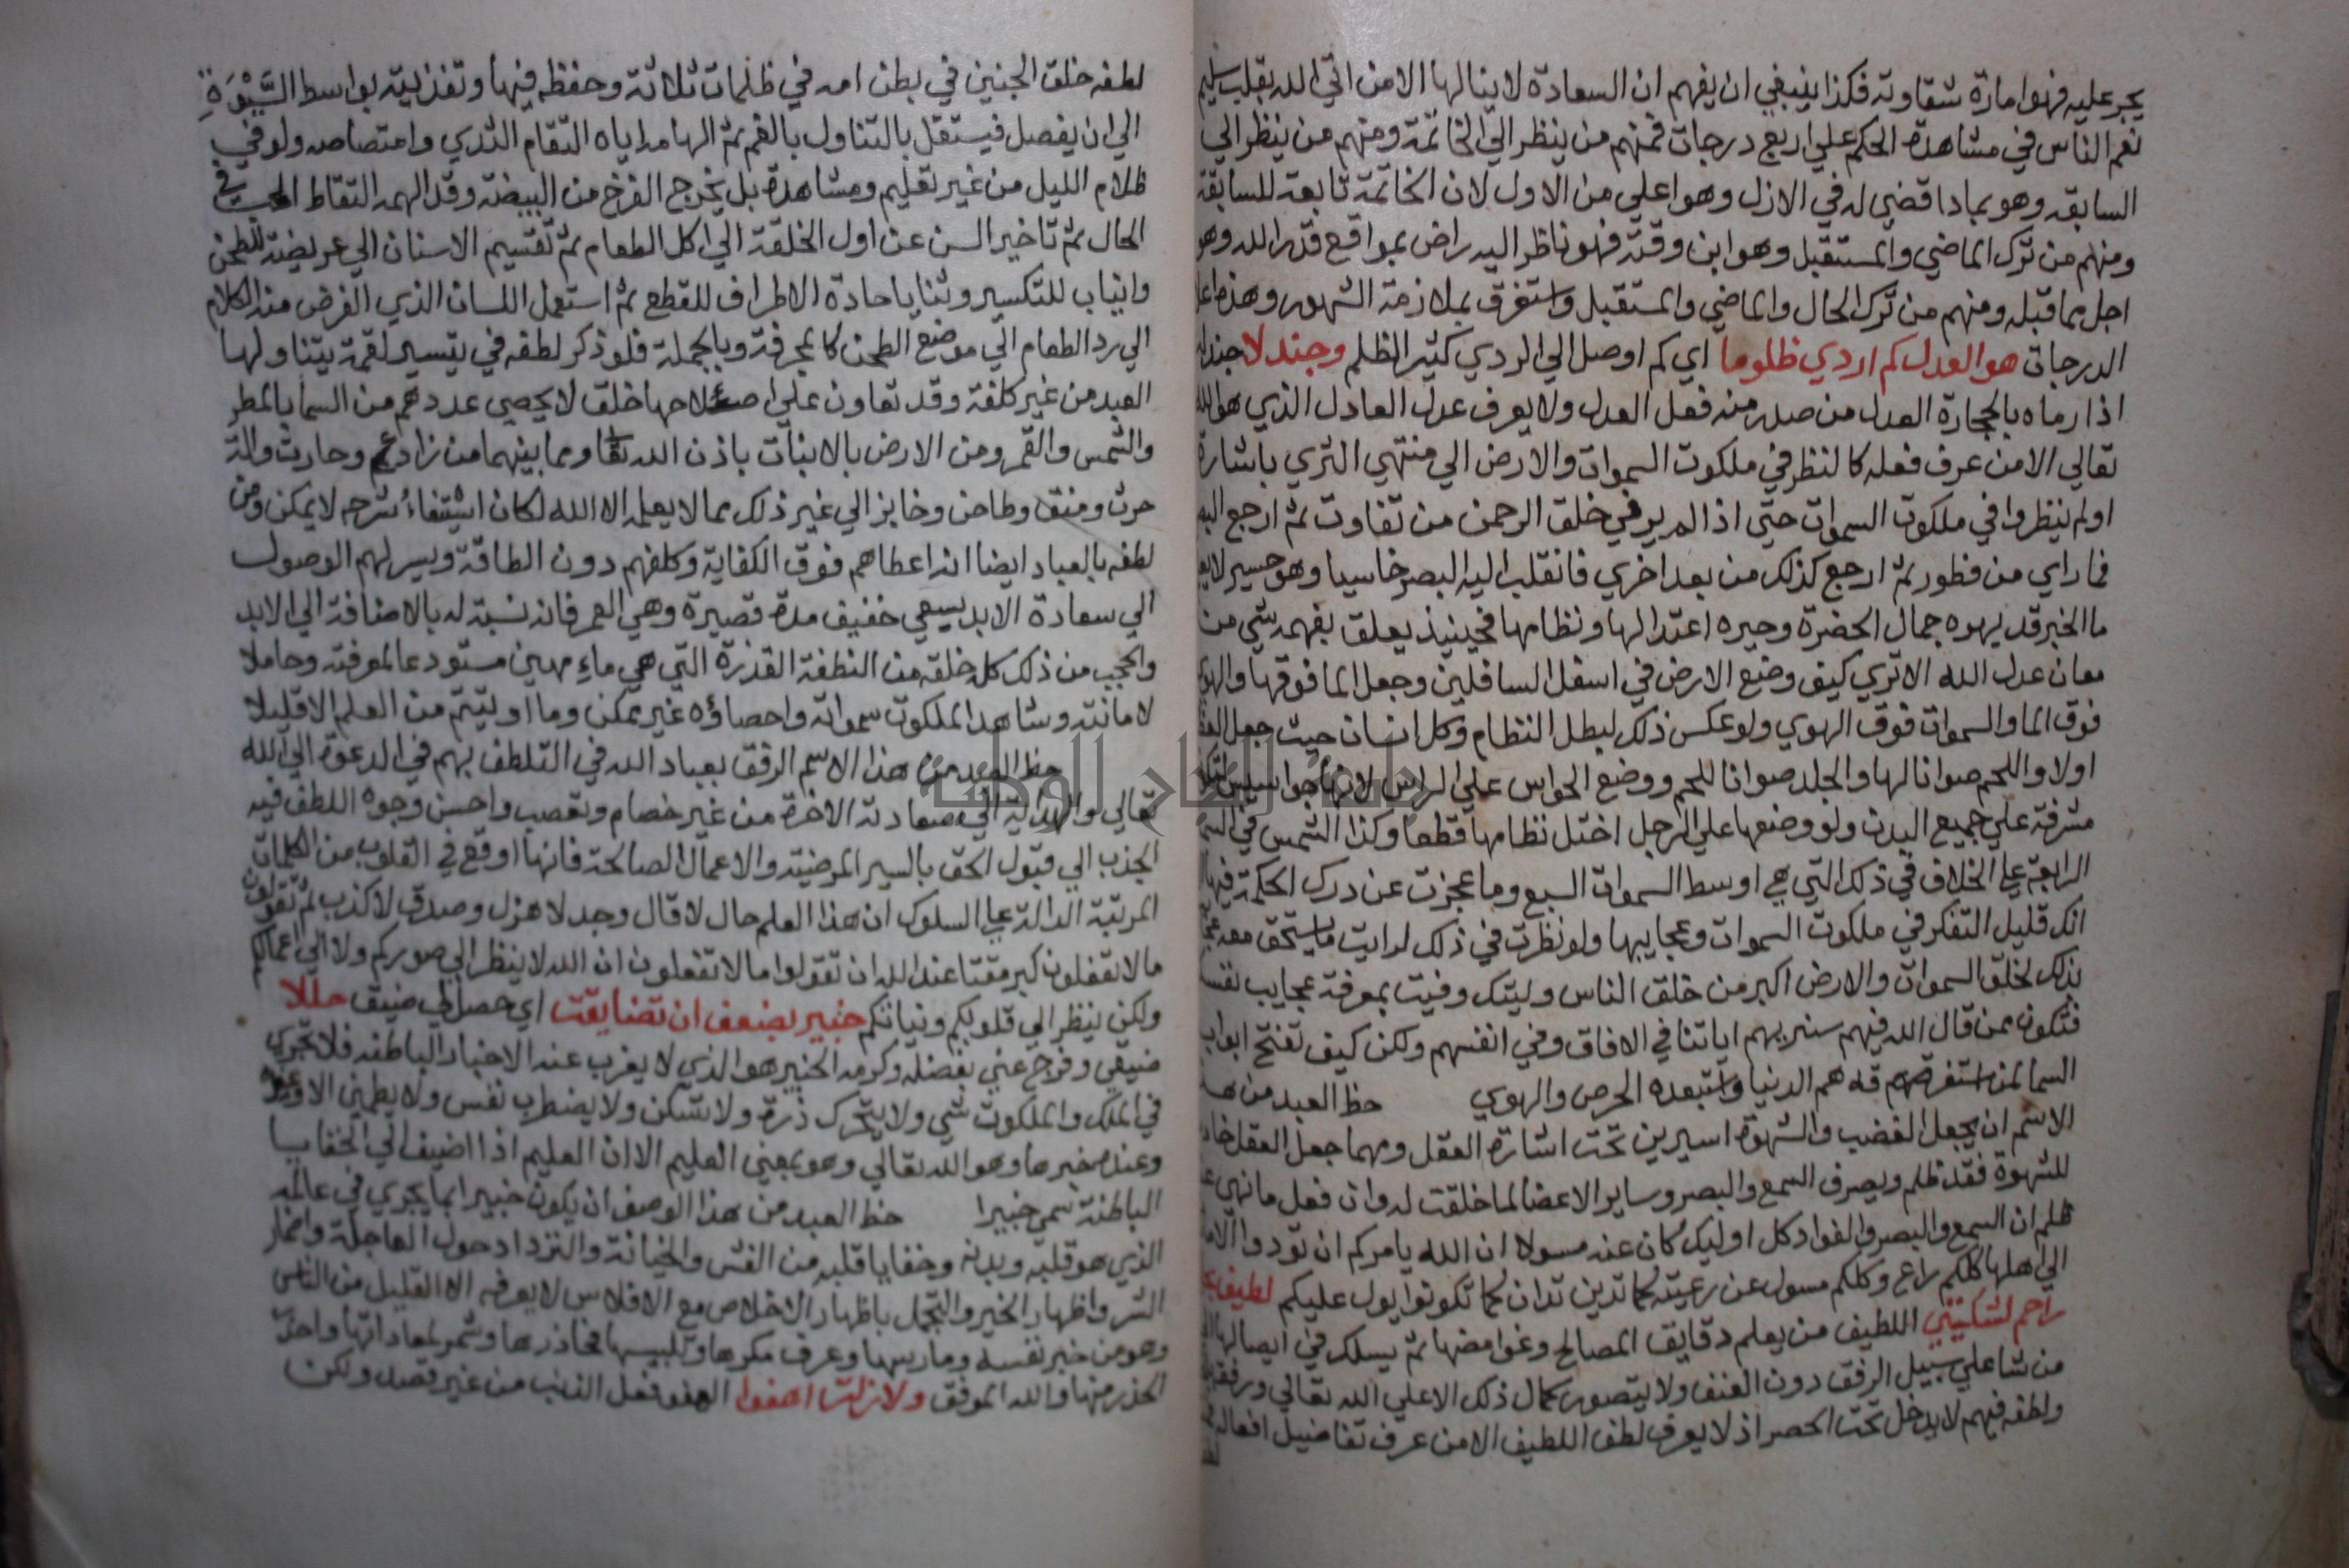 يجر عليه فهو امارة شقاوته فكذا ينبغي ان يفهم ان السعادة لا ينالها الا من اتي الله بقلب سليم
نعم الناس في مشاهدة الحكم علي اربع درجات فمنهم من ينظر الي الخاتمة ومنهم من ينظر الي
السابقه وهو بماذا قضي له في الازل وهو اعلي من الاول لان الخاتمة تابعة للسابقة
ومنهم من ترك الماضي والمستقبل وهو ابن وقته فهو ناظر اليه راض بمواقع قدر الله وهو
اجل مما قبله ومنهم من ترك الحال والماضي والمستقبل واستغرق بملازمة الشهود وهذه
الدرجات هو العدل كم اردي ظلوما اي كم اوصل الي الردي كثير الظلم وجندلا
اذا رماه بالحجارة العدل من صدر منه فعل العدل ولا يعرف عدل العادل الذي هو الله
تعالي الا من عرف فعله كالنظر في ملكوت السموات والارض الي منتهي الثري باشارة
اولم ينظروا في ملكوت السموات حتي اذا لم ير في خلق الرحمن من تفاوت ثم ارجع
فما راي من فطور ثم ارجع كذلك من بعد اخري فانقلب اليه البصر خاسيا وهو حسير
ما الخبر قد يهوه جمال الحضرة وحيره اعتدالها ونظامها فحينيذ يعلق بفهمه شي من
معان عدل الله الا تري كيف وضع الارض في اسفل السافلين وجعل الما فوقها والهوي
فوق الما والسموات فوق الهوي ولو عكس ذلك لبطل النظام وكل انسان حيث جعل
اولا واللحم صوانا لها والجلد صوانا للحم ووضع الحواس علي الراس لانها جواسيس
مشرفة علي جميع البدن ولو وضعها علي الرجل اختل نظامها قطعا وكذا الشمس في
الرابعة علي الخلاف في ذلك التي هي اوسط السموات السبع وما عجزت عن درك الحكمة
انك قليل التفكر في ملكوت السموات وعجايبها ولو نظرت في ذلك لرايت ما يستحق معه
بذلك لخلق السموات والارض اكبر من خلق الناس وليتك وفيت بمعرفة عجايب
فتكون ممن قال الله فيهم سنريهم اياتنا في الافاق وفي انفسهم ولكن كيف تفتح ابواب
السما لمن استغرقهم هم الدنيا واستبعده الحرص والهوي حظ العبد من
الاسم ان يجعل الغضب والشهوة اسيرين تحت اشارة العقل ومهما جعل العقل
للشهوة فقد ظلم ويصرف السمع والبصر وساير الاعضا لما خلقت له وان فعل ما نهي
ظلم ان السمع والبصر والفواد كل اوليك كان عنه مسولا ان الله يامركم ان تودوا
الي اهلها كلكم راع وكلكم مسول عن رعيته كما تدين تدان كما تكونوا يول عليكم لطيف
راحم لشكيتي اللطيف من يعلم دقايق المصالح وغوامضها ثم يسلك في ايصالها
من شا علي سبيل الرفق دون العنف ولا يتصور كمال ذلك الا علي الله تعالي ورفقه
ولطفه فيهم لا يدخل تحت الحصر اذ لا يعرف لطف اللطيف الا من عرف تفاضيل افعاله
لطفه خلق الجنين في بطن امه في ظلمات ثلاثة وحفظه فيها وتغذيته بواسط السرة
الي ان يفصل فيستقل بالتناول بالفم ثم الهامه اياه التقام الثدي وامتصاصه ولو في
ظلام الليل من غير تعليم ومشاهدة بل يخرج الفرخ من البيضة وقد الهمه التقاط الحب في
الحال ثم تاخير السن عن اول الخلقة الي اكل الطعام ثم تقسيم الاسنان الي عريضة للطحن
وانياب للتكسير وثنايا حادة الاطراف للقطع ثم استعمل اللسان الذي الغرض منه الكلام
الي رد الطعام الي موضع الطحن كالمجرفة وبالجملة فلو ذكر لطفه في تيسير لقمة يتناولها
العبد من غير كلفة وقد تعاون علي اصلاحها خلق لا يحصي عددهم من السما بالمطر
والشمس والقمر ومن الارض بالانبات باذن الله تعا ومما بينهما من زارع وحارث والة
حرث ومنق وطاحن وخابز الي غير ذلك مما لا يعلمه الا الله لكان استيفاء شرحه لا يمكن ومن
لطفه بالعباد ايضا انه اعطاهم فوق الكفاية وكلفهم دون الطاقة ويسر لهم الوصول
الي سعادة الابد بسعي خفيف مدة قصيرة وهي العمر فانه نسبة له بالاضافة الي الابد
والعجب من ذلك كله خلقه من النطفة القذرة التي هي ماء مهين مستودعا لمعرفته وحاملا
لامانته وشاهدا لملكوت سمواته واحصاؤه غير ممكن وما اوتيتم من العلم الا قليلا
حظ العبد من هذا الاسم الرفق بعباد الله في التلطف بهم في الدعوة الي الله
تعالي والهداية الي سعادة الاخرة من غير خصام وتعصب واحسن وجوه اللطف فيه
الجذب الي قبول الحق بالسير المرضية والاعمال الصالحة فانها اوقع في القلوب من الكلمات
المرتبة الدالة علي السلوك ان هذا العلم حال لا قال وجد لا هزل وصدق لا كذب لم تقولون
ما لا تفعلون كبر مقتا عند الله ان تقولوا ما لا تفعلون ان الله لا ينظر الي صوركم ولا الي اعمالكم
ولكن ينظر الي قلوبكم ونياتكم خبير بضعف ان تضايقت اي حصل لي ضيق حللا
ضيقي وفرج عني بفضله وكرمه الخبير هو الذي لا يعزب عنه الاخبار الباطنه فلا تجري
في الملك والملكوت شي ولا يتحرك ذرة ولا تسكن ولا يضطرب نفس ولا يطمين الا وعنده
وعنده خبرها وهو الله تعالي وهو بمعني العليم الا ان العليم اذا اضيف الي الخفايا
الباطنة سمي خبيرا حظ العبد من هذا الوصف ان يكون خبيرا بما يجري في عالمه
الذي هو قلبه وبدنه وخفايا قلبه من الغش والخيانة والتردد حول العاجلة واضمار
الشر واظهار الخير والتجمل باظهار الاخلاص مع الافلاس لا يعرفه الا القليل من الناس
وهو من خبر نفسه ومارسها وعرف مكرها وتلبيسها فحاذرها وشمر لمعاداتها واخذ
الحذر منها والله الموفق ولا زلت اهفوا الهفو فعل الذنب من غير قصد ولكن
جامعة النجاح الوطنية